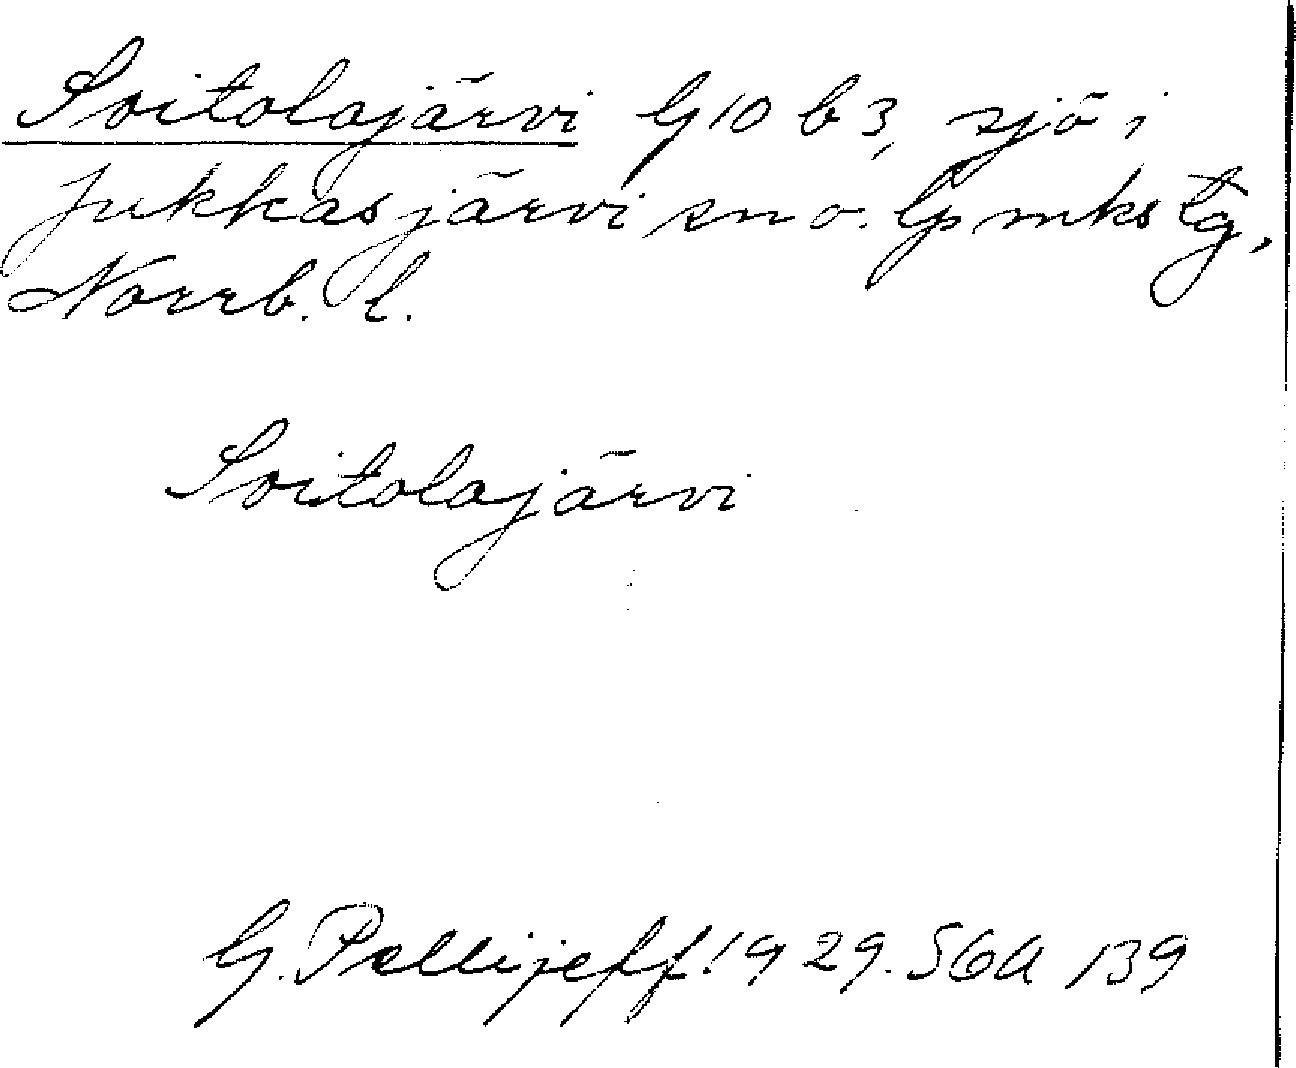 Soitolajärvi G10 b3, sjö i
Jukkasjärvi sn o. lpmks tg,
Norrb. l.
Soitolajärvi
G. Pellijeff. 1929. S6A 139